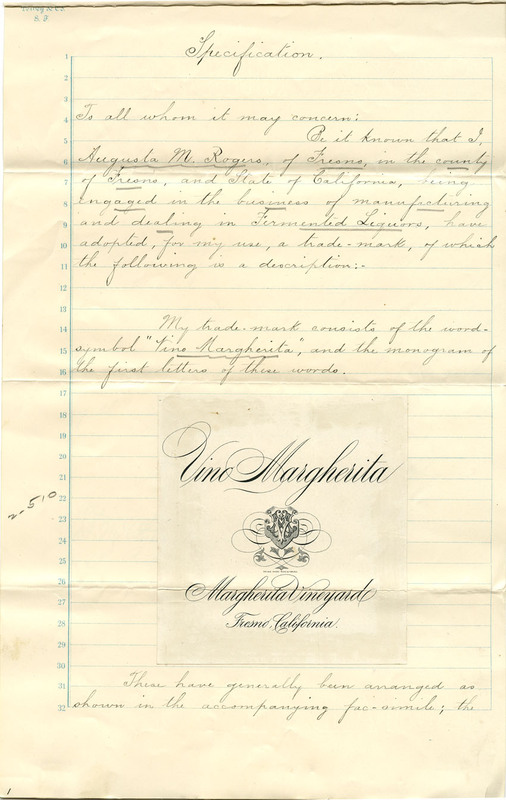 Specification.
To all whom it may concern:
Be it known that I,
Augusta M. Rogers, of Fresno, in the county
of Fresno, and State of California, being
engaged in the business of manufacturing
and dealing in Fermented Liquors, have
adopted, for my use, a trade-mark, of which
the following is a description:-
My trade-mark consists of the word-
symbol "Vino Margherita", and the monogram of
the first letters of these words.
Vino Margherita
Margherita Vineyard
Fresno, California.
These have generally been arranged as
shown in the accompanying fac-simile; the
1
2
3
4
5
6
7
8
9
10
11
12
13
14
15
16
17
18
19
20
21
22
23
24
25
26
27
28
29
30
31
32
2-510